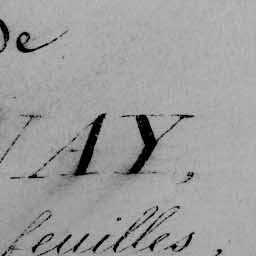 de
AY,
feuilles,